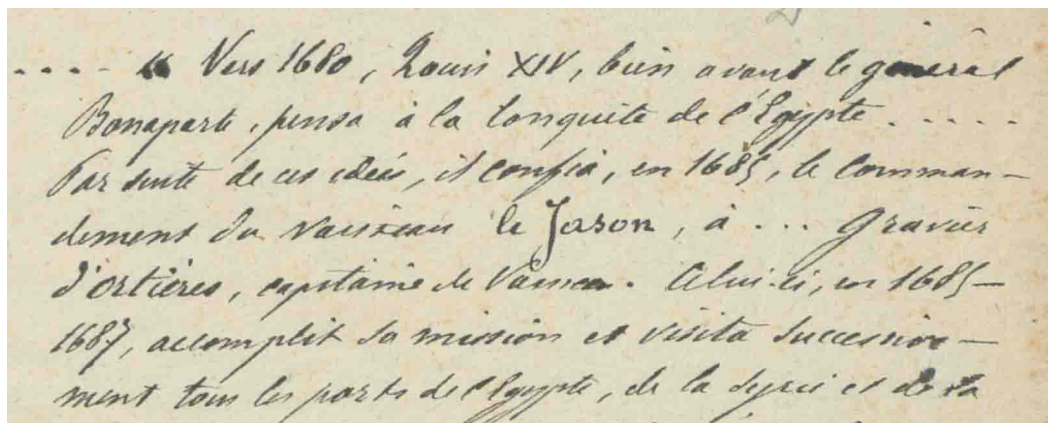 .... « Vers 1680, Louis XIV, bien avant le général
Bonaparte, pensa à la conquête de l'Égypte .....
Par suite de ces idées, il confia, en 1685, le comman-
dement du vaisseau le Jason, à ... Gravier
d'Ortières, capitaine de vaisseau. Celui-ci, en 1685-
1687, accomplit sa mission et visita successive-
ment tous les ports de l'Égypte, de la Syrie et de la